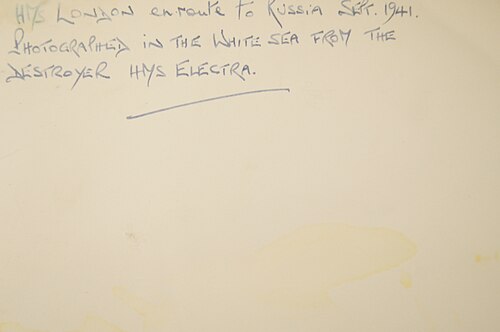 HMS LONDON enroute to RUSSIA SEPT. 1941.
PHOTOGRAPHED IN THE WHITE SEA FROM THE
DESTROYER HMS ELECTRA.